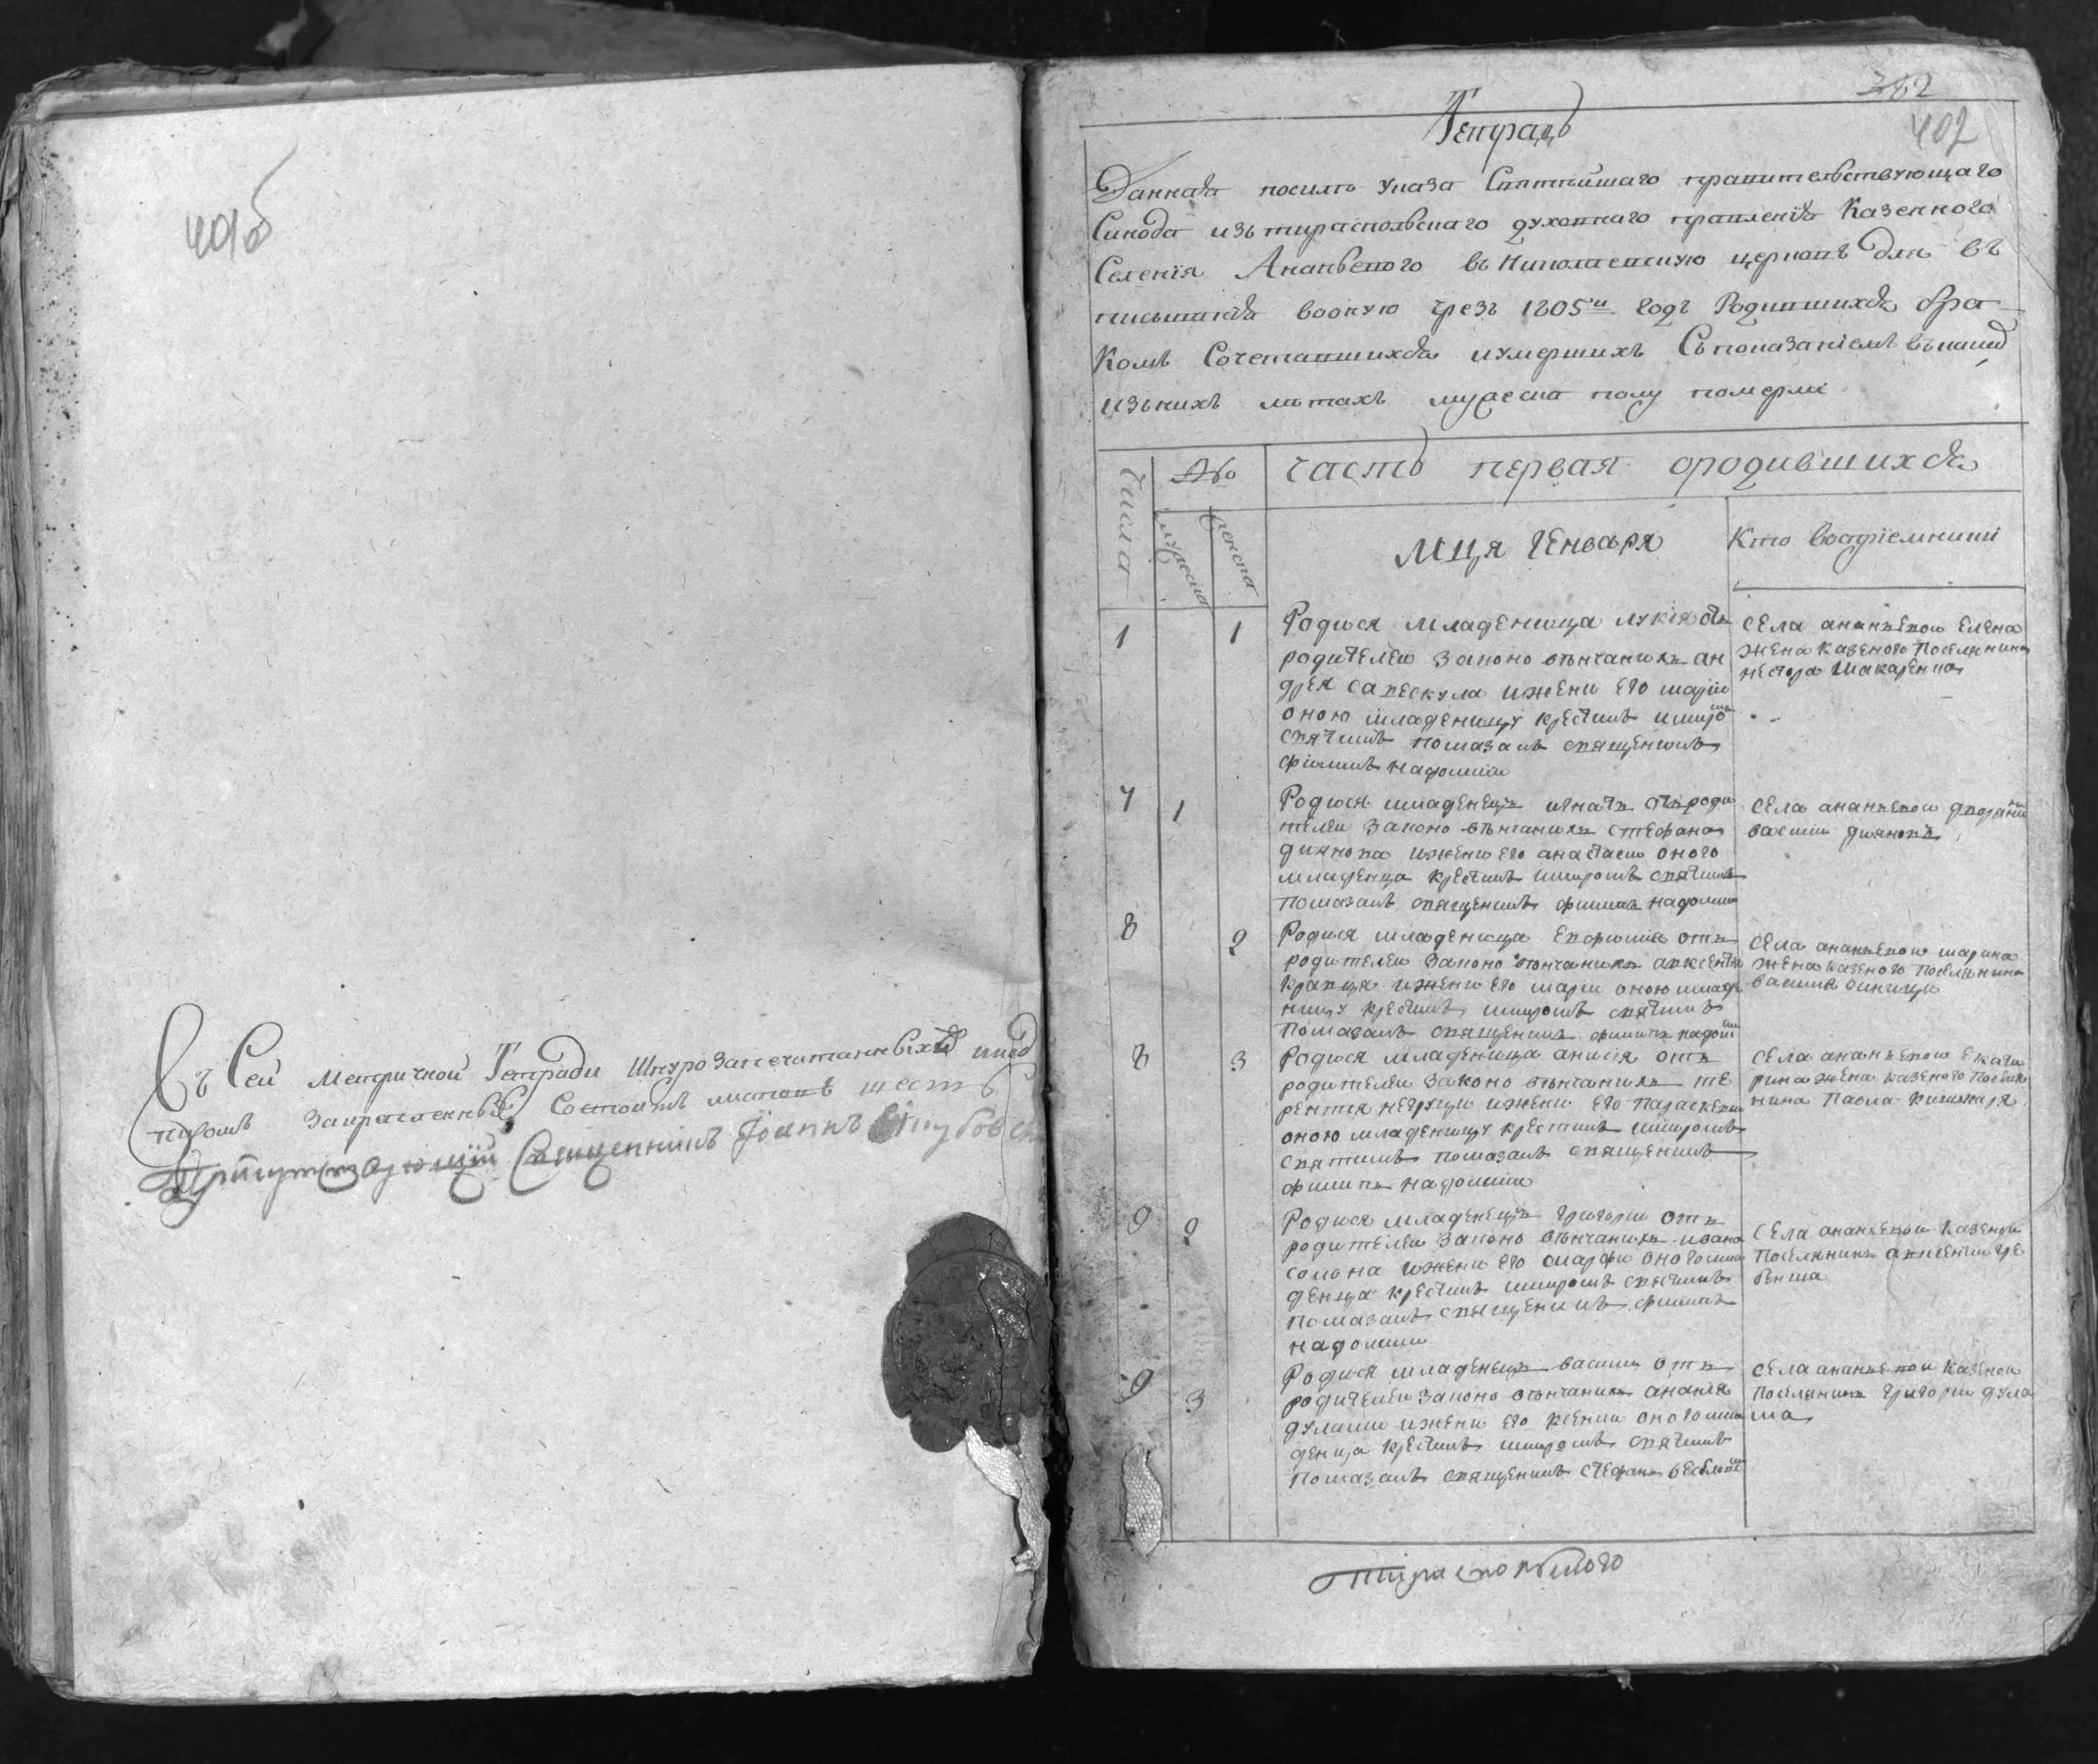 401б
Въ Сей Метричной Тетради Шнурозапечатанныхъ и под
писомъ закрепленныхъ Состоитъ листовъ шесть
Присутствующій Священникъ Іоаннъ
382
402
Тетрадь
Данная посилѣ указа Святѣйшаго правительствующаго
Синода изъ тираспольскаго духовнаго правленія Казенного
Селенія Ананьевого въ Николаевскую церковь для въ
писыванія вооную чрезъ 1805й годъ Родившихся бра
комъ Сочетавшихся иумершихъ Съпоказаніемъ
изънихъ лѣтахъ мужеска полу померлі
Числа
№
часть первая ородившихся
мужеска
женска
Мця Генваря
Кто воспріемники
1
1
Родися младеница лукія отъ
родителеи законо вѣнчаныхъ ан
дрея сапескула ижени его маріи
оною младеницу крестилъ имиро
святимъ помазалъ священикъ
филипъ надолиши
села ананьевои елена
жена казеного поселянина
нестора макаренка
7
1
Родися младенецъ игнатъ отъ роди
телеи законо вѣнчаныхъ стефана
диянова ижени его анастасіи оного
младенца крестилъ имиромъ святимъ
помазалъ священикъ филипъ надолиши
села ананьевои дворянинъ
василии дияновъ
8
2
Родися младеница евфимия отъ
родителеи законо вѣнчаныхъ авксентия
кравця ижени его маріи оною младе
ницу крестилъ имиромъ святимъ
помазалъ священикъ филипъ надолиши
села ананьевои марина
жена казеного поселянина
василия синици
8
3
Родися младеница анисия отъ
родителеи законо вѣнчаныхъ те
рентия негруци ижени его параскевии
оною младеницу крестилъ имиромъ
святимъ помазалъ священикъ
филипъ надолиши
села ананьевои екате
рина жена казеного поселя
нина павла кишкаря
9
2
Родися младенецъ григории отъ
родителеи законо вѣнчаныхъ ивана
солона ижени его марфи оного мла
денца крестилъ имиромъ святимъ
помазалъ священикъ филипъ
надолиши
села ананьевои казенои
поселянинъ авксентии гре
бенша
9
3
Родися младенецъ василии отъ
родителеи законо вѣнчаныхъ анания
дулами ижени его ксении оного мла
денца крестилъ имиромъ святимъ
помазалъ священикъ стефанъ
села ананьевои казенои
поселянинъ григории дула
ма
тираспольского